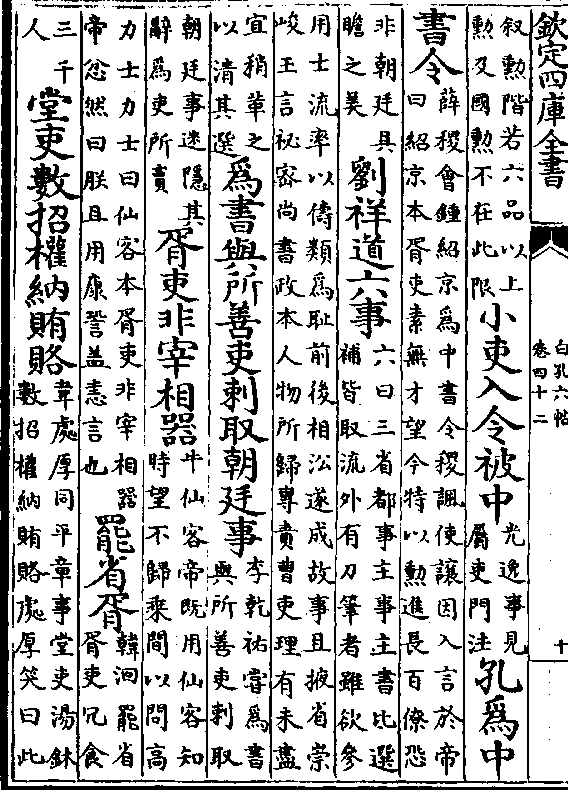 欽定四庫全書
白孔六帖
卷四十二
十
叙勲階若六品以上
勲及國勲不在此限
小吏入令被中
光逸事見
屬吏門注
孔為中
書令
薛稷會鍾紹京為中書令稷諷使讓因入言於帝
曰紹京本胥吏素無才望今特以勲進長百僚恐
非朝廷具
瞻之美
劉祥道六事
六曰三省都事主事主書比選
補皆取流外有刀筆者雖欲參
用士流率以儔類為恥前後相沿遂成故事且掖省崇
峻王言祕密尚書政本人物所歸專責曹吏理有未盡
宜稍革之
以清其選
為書與所善吏刺取朝廷事
李乾祐甞為書
與所善吏刺取
朝廷事迷隠其
辭為吏所責
胥吏非宰相器
牛仙客帝既用仙客知
時望不歸乘間以問高
力士力士曰仙客本胥吏非宰相器
帝忿然曰朕且用康䛒盖恚言也
罷省胥
韓洄罷省
胥吏冗食
三千
人
堂吏數招權納賄賂
韋處厚同平章事堂吏湯銖
數招權納賄賂處厚笑曰此